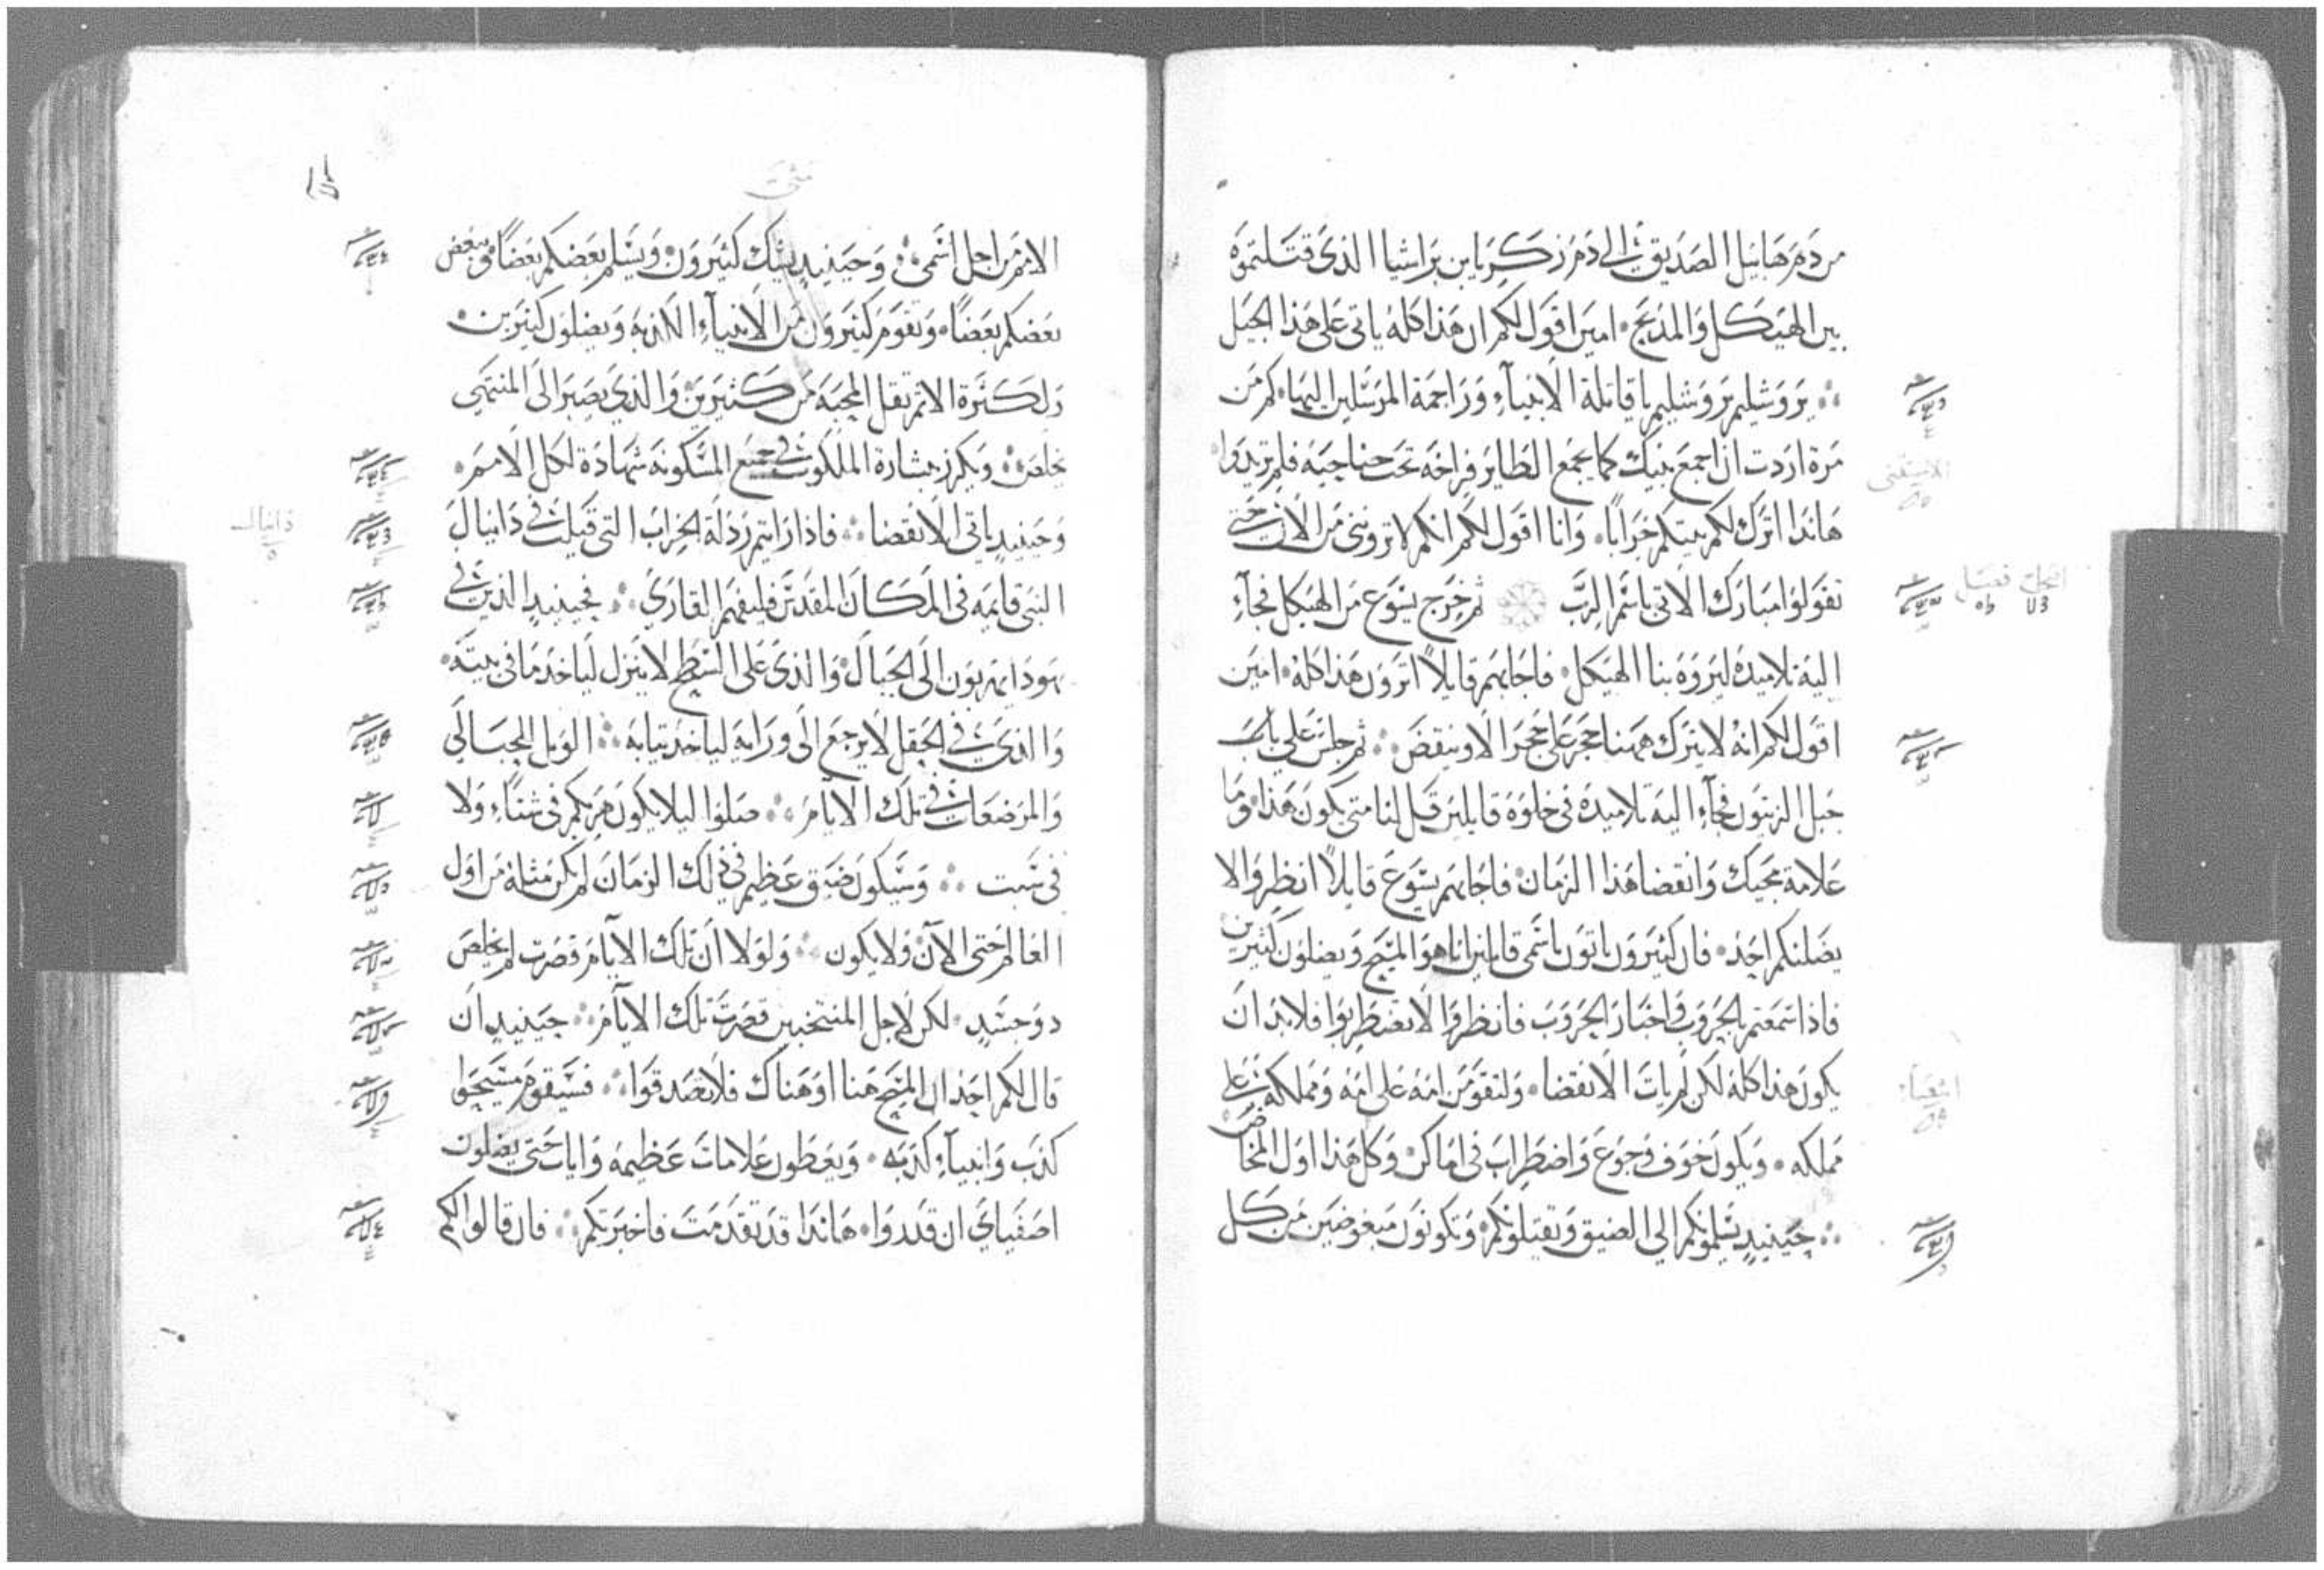 من دم هابيل الصديق الى دم زكريا بن براشيا الذي قتلتموه
بين الهيكل والمذبح امين اقول لكم ان هذا كله ياتي على هذا الجيل
يروشليم يروشليم يا قاتلة الانبيآء وراجمة المرسلين اليها كم من
مرة اردت ان اجمع بنيك كما يجمع الطاير فراخه تحت جناحيه فلم تريدوا
هاندا اترك لكم بيتكم خرابا وانا اقول لكم انكم لا تروننى من الان حتى
تقولوا مبارك الاتي باسم الرب ثم خرج يسوع من الهيكل فجآء
اليه تلاميده ليروه بنا الهيكل فاجابهم قايلا اترون هذا كله امين
اقول لكم انه لا يترك ههنا حجر على حجر الا وينقض ثم جلس على باب
جبل الزيتون فجآء اليه تلاميده في خلوة قايلين قل لنا متى يكون هذا وما
علامة مجيك وانقضا هذا الزمان فاجابهم يسوع قايلا انظروا لا
يضلنكم احد فان كثيرون ياتون باسمى قايلين انا هو المسيح ويضلون كثيرين
فاذا سمعتم بالحروب واخبار الحروب فانظروا لا تضطربوا فلابد ان
يكون هذا كله لكن لم يات الانقضا ولتقومن امة على امة ومملكة على
مملكه ويكون خوف وجوع واضطراب في اماكن وكل هذا اول المخاض
حينيد يسلمونكم الى الضيق وتقتلونكم وتكونون مبغوضين من كل
متى
الامم من اجل اسمى وحينيد يشك كثيرون ويسلم بعضكم بعضا ويبغض
بعضكم بعضا وتقوم كثيرون من الانبيآء الكذبة ويضلون كثيرين
ولكثرة الاثم تقل المحبة من كثيرين والذي يصبر الى المنتهى
يخلص ويكرز ببشارة الملكوت في جميع المسكونة شهادة لكل الامم
وحينيد ياتي الانقضا فاذا رايتم رذلة الخراب التى قيلت في دانيال
دانيال
النبى قايمة في المكان المقدس فليفهم القاري فحينيد الذين في
يهودا يهربون الى الجبال والذي على السطح لا ينزل لياخد ما في بيته
والذي في الحقل لا يرجع الى ورايه لياخد تيابه الويل للحبالي
والمرضعات في تلك الايام صلوا ليلا يكون هربكم في شتاء ولا
في سبت وسيكون ضيق عظيم في ذلك الزمان لم يكن مثله من اول
العالم حتى الآن ولا يكون ولولا ان تلك الايام قصرت لم يخلص
دو جسد لكن لاجل المنتخبين قصرت تلك الايام حينيد ان
قال لكم احد ان المسيح هنا او هناك فلا تصدقوا فسيقوم مسيحوا
كذب وانبيآء كذبه ويعطون علامات عظيمة وايات حتى يضلون
اصفياي ان قدروا هاندا قد تقدمت فاخبرتكم فان قالوا لكم